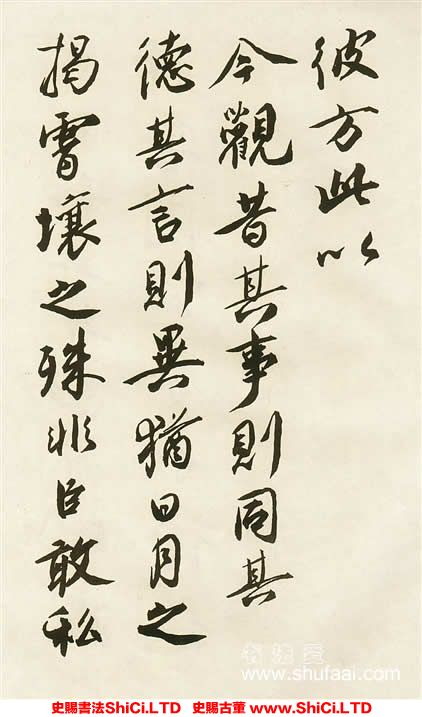 彼方此以
今觀昔其事則同其
德其言則異猶日月之
揭霄壤之殊非臣敢私
www.shufaai.com
史賜書法ShiCi.LTD 史賜古董 www.ShiCi.LTD